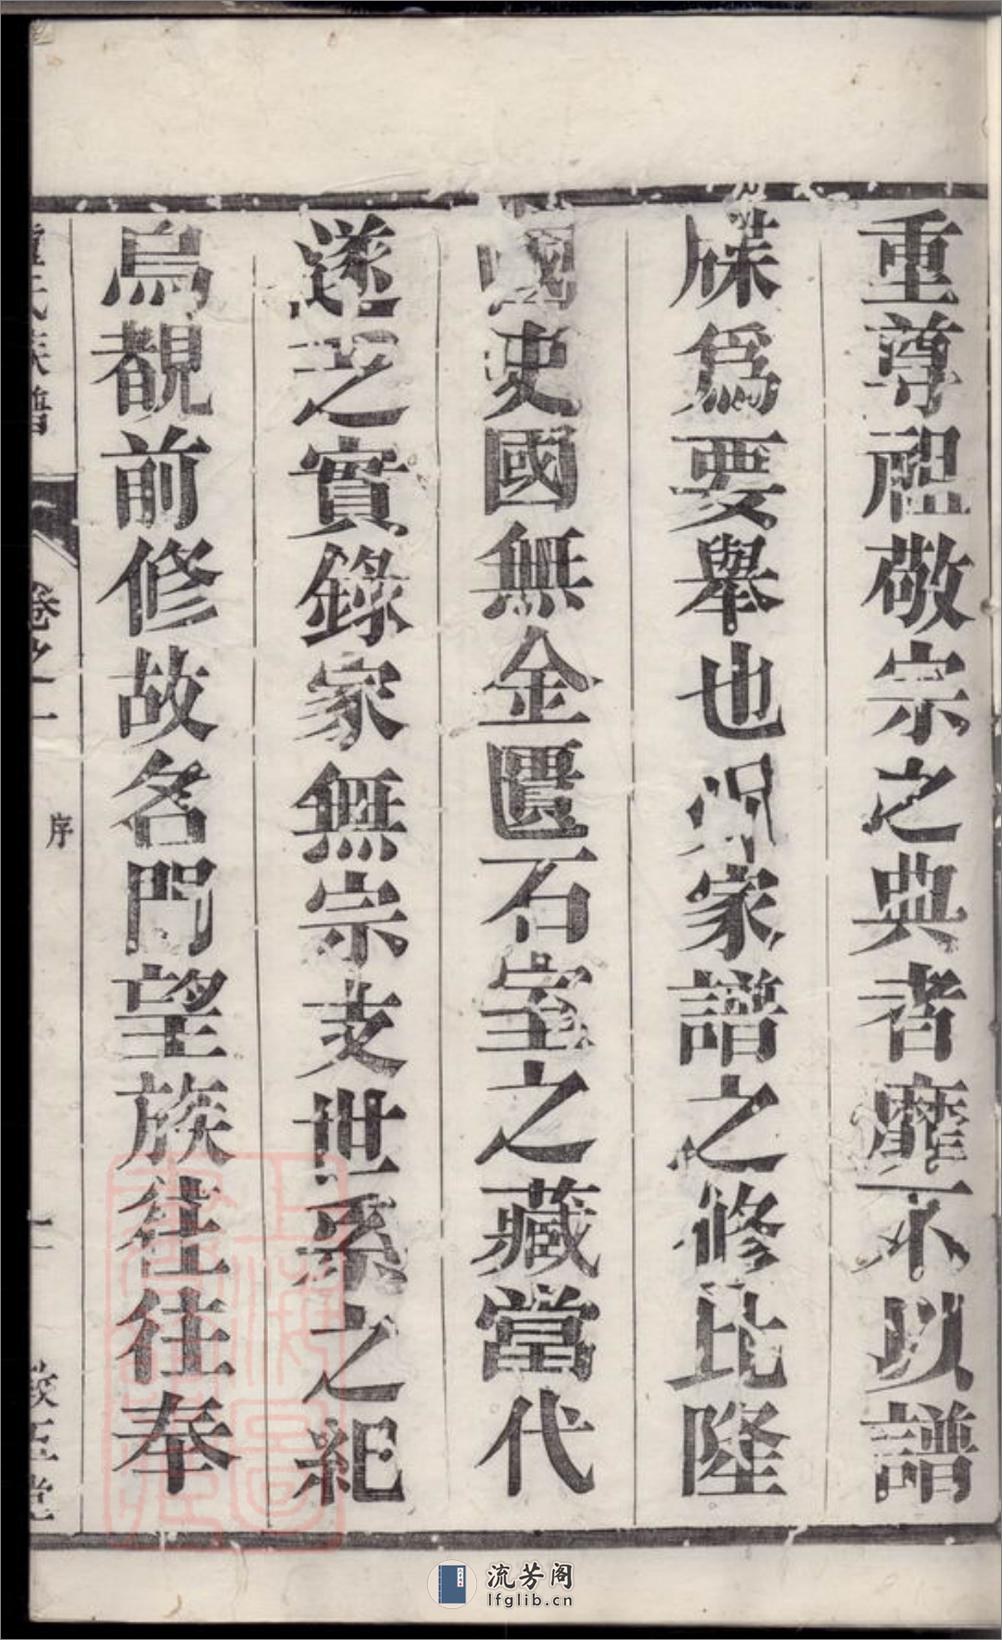 重尊祖敬宗之典者靡不以譜
牒爲要舉也况家譜之修比隆
國史國無金匱石室之藏當代
遂乏之實錄家無宗支世系之紀
烏覩前修故名門望族往往奉
氏族譜
卷之一
序
流芳阁
lfglib.cn